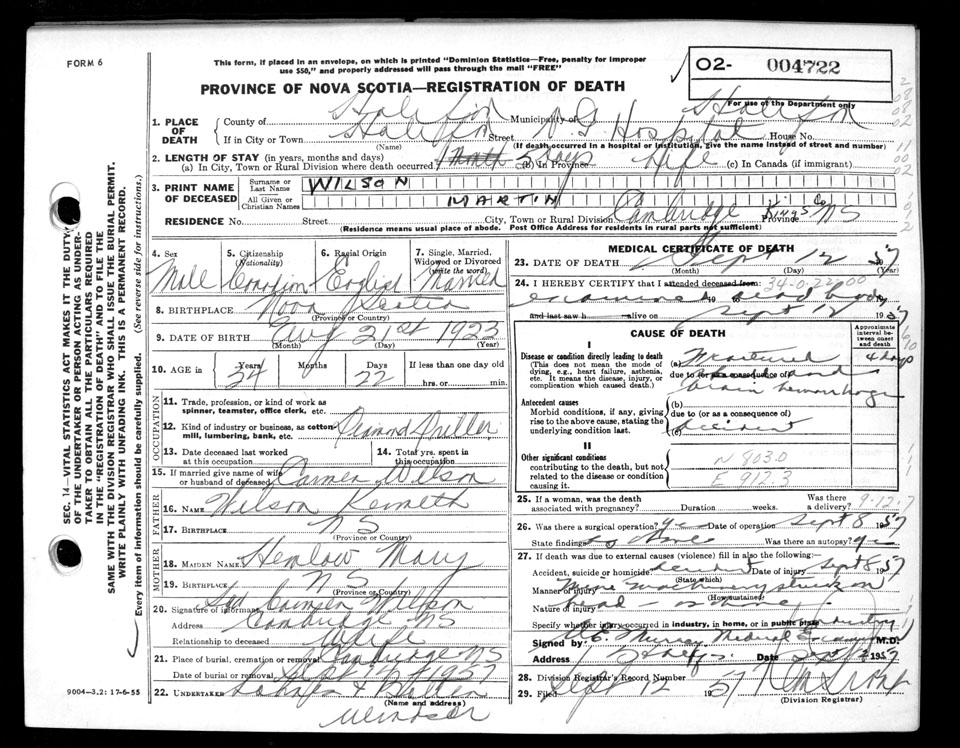 FORM 6
This form, if placed in an envelope, on which is printed "Dominion Statistics—Free, penalty for improper
use $50," and properly addressed will pass through the mail "FREE"
O2- 004722
PROVINCE OF NOVA SCOTIA—REGISTRATION OF DEATH
For use of the Department only
1. PLACE OF DEATH
County of Halifax Municipality of Halifax
If in City or Town Halifax Street V. G. Hospital House No.
(Name) (If death occurred in a hospital or institution, give the name instead of street and number)
2. LENGTH OF STAY (in years, months and days)
(a) In City, Town or Rural Division where death occurred days (b) In Province Life (c) In Canada (if immigrant)
3. PRINT NAME OF DECEASED
Surname or Last Name WILSON
All Given or Christian Names MARTIN
RESIDENCE No. Street City, Town or Rural Division Cambridge Kings Co Province NS
(Residence means usual place of abode. Post Office Address for residents in rural parts not sufficient)
4. Sex Male
5. Citizenship (Nationality) Canadian
6. Racial Origin English
7. Single, Married, Widowed or Divorced (write the word) Married
8. BIRTHPLACE Nova Scotia
(Province or Country)
9. DATE OF BIRTH Aug 21st 1923
(Month) (Day) (Year)
10. AGE in Years 34 Months Days 22 If less than one day old
hrs. or min.
OCCUPATION
11. Trade, profession, or kind of work as
spinner, teamster, office clerk, etc.
12. Kind of industry or business, as cotton-
mill, lumbering, bank, etc. Diamond Driller
13. Date deceased last worked
at this occupation
14. Total yrs. spent in
this occupation
15. If married give name of wife
or husband of deceased Carmen Wilson
FATHER
16. NAME Wilson Kenneth
17. BIRTHPLACE NS
(Province or Country)
MOTHER
18. MAIDEN NAME Henlow Mary
19. BIRTHPLACE NS
(Province or Country)
20. Signature of informant Carmen Wilson
Address Cambridge NS
Relationship to deceased Wife
21. Place of burial, cremation or removal Cambridge NS
Date of burial or removal Sept 1957
22. UNDERTAKER
(Name and address)
Windsor
MEDICAL CERTIFICATE OF DEATH
23. DATE OF DEATH Sept 12 57
(Month) (Day) (Year)
24. I HEREBY CERTIFY that I attended deceased from 34-0-22-00
examined 19 to dead body
and last saw h alive on Sept 12 1957
CAUSE OF DEATH
Approximate interval between onset and death
I
Disease or condition directly leading to death
(This does not mean the mode of dying, e.g., heart failure, asthenia, etc. It means the disease, injury, or complication which caused death.)
(a) Fractured
due to (or as a consequence of) and
brain hemorrhage
4 days
Antecedent causes
Morbid conditions, if any, giving rise to the above cause, stating the underlying condition last.
(b)
due to (or as a consequence of)
(c) accident
II
Other significant conditions
contributing to the death, but not related to the disease or condition causing it.
N 803.0
E 912.3
25. If a woman, was the death associated with pregnancy? Duration weeks. Was there a delivery? 9.12.7
26. Was there a surgical operation? yes Date of operation Sept 8 1957
State findings as above Was there an autopsy? yes
27. If death was due to external causes (violence) fill in also the following:—
Accident, suicide or homicide accident Date of injury Sept 8 1957
(State which)
Manner of injury Mine machinery struck on
(How sustained)
Nature of injury head — as above
Specify whether injury occurred in industry, in home, or in public place industry
Signed by Murray Medical Examiner M.D.
Address Halifax Date Sept 1957
28. Division Registrar's Record Number
29. Filed Sept 12 1957
(Division Registrar)
SEC. 14—VITAL STATISTICS ACT MAKES IT THE DUTY
OF THE UNDERTAKER OR PERSON ACTING AS UNDER-
TAKER TO OBTAIN ALL THE PARTICULARS REQUIRED
IN THE "REGISTRATION OF DEATH" AND TO FILE THE
SAME WITH THE DIVISION REGISTRAR WHO SHALL ISSUE THE BURIAL PERMIT.
WRITE PLAINLY WITH UNFADING INK. THIS IS A PERMANENT RECORD.
Every item of information should be carefully supplied. (See reverse side for instructions.)
9004-3.2: 17-6-55